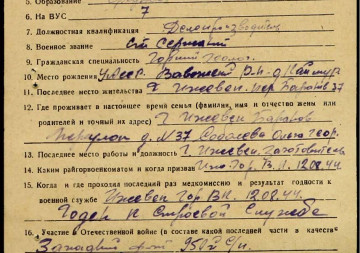 5. Образование
6. На ВУС 7
7. Должностная квалификация Делопроизводитель
8. Военное звание Ст. Сержант
9. Гражданская специальность
10. Место рождения УАССР. Завожский р-н д.
11. Последнее место жительства г. Ижевск. пер. 37
12. Где проживает в настоящее время семья (фамилия, имя и отчество жены или
родителей и точный их адрес) г. Ижевск
переулок д. № 37
13. Последнее место работы и должность г. Ижевск.
14. Каким райгорвоенкоматом и когда призван Гор. В.К. 12.02.44.
15. Когда и где проходил последний раз медкомиссию и результат годности к
военной службе Ижевск Гор ВК. 12.02.44.
Годен к Строевой Службе
16. Участие в Отечественной войне (в составе какой последней части в качестве
Западный фронт 950 с/п.